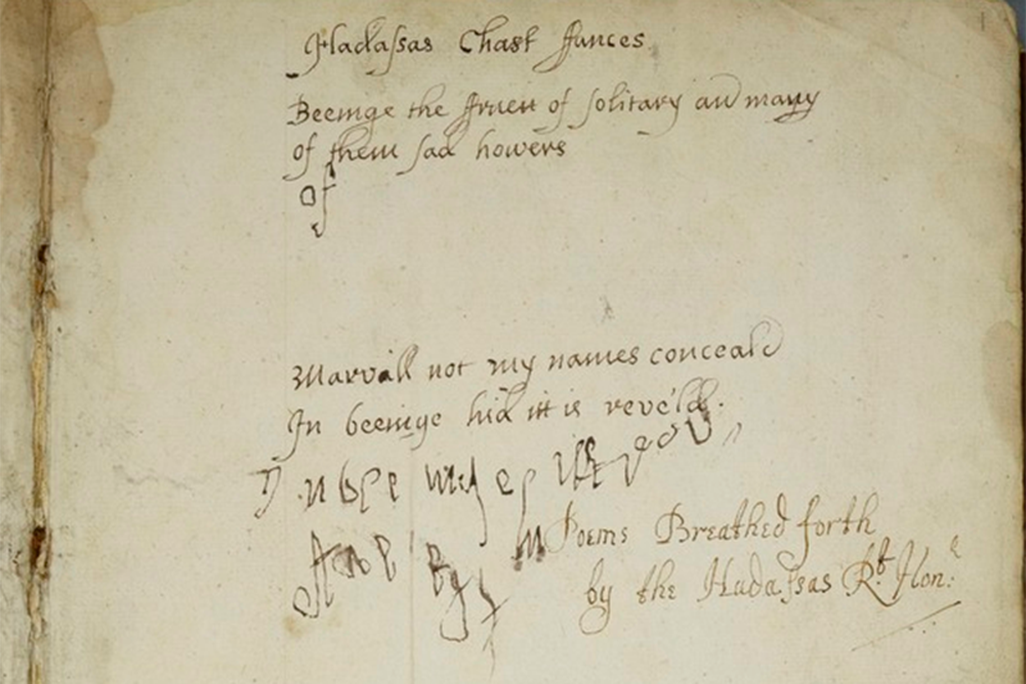 Hadassas Chast fances
Beeinge the fruett of solitary and many
of them sad howers
of
Marvill not my names conceald
In beeinge hid itt is reveld.
Poems Breathed forth
by the Hadassas Rt. Hon:e